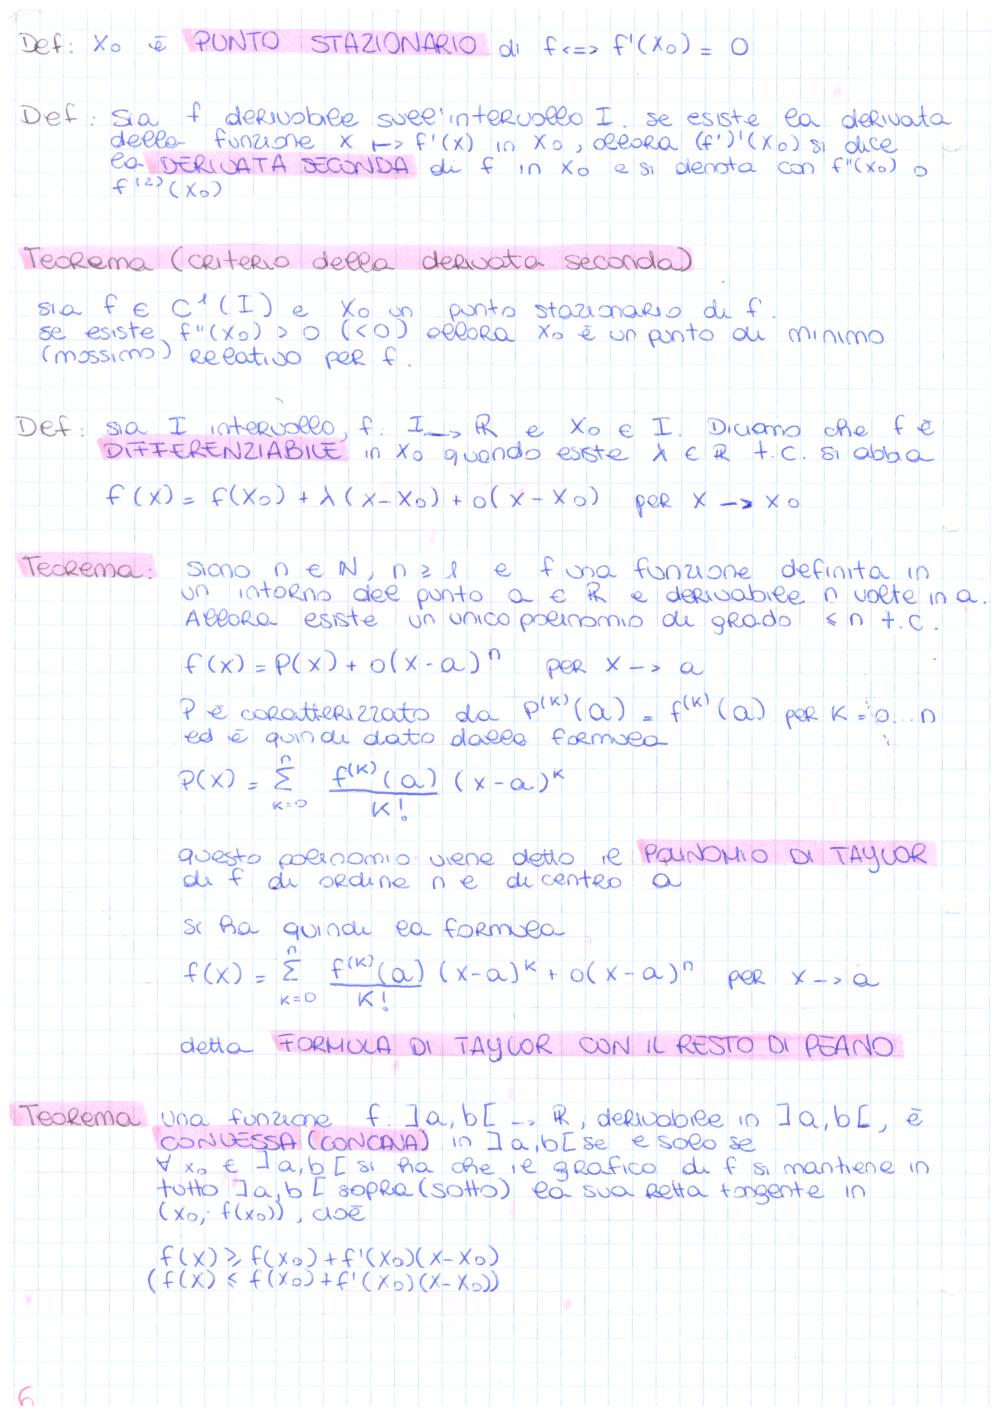 Def: x₀ è PUNTO STAZIONARIO di f <=> f'(x₀) = 0
Def: sia f derivabile sull'intervallo I. se esiste la derivata
della funzione x ↦ f'(x) in x₀, allora (f')'(x₀) si dice
la DERIVATA SECONDA di f in x₀ e si denota con f''(x₀) o
f⁽²⁾(x₀)
Teorema (criterio della derivata seconda)
sia f ∈ C¹(I) e x₀ un punto stazionario di f.
se esiste f''(x₀) > 0 (<0) allora x₀ è un punto di minimo
(massimo) relativo per f.
Def: sia I intervallo, f: I → ℝ e x₀ ∈ I. Diciamo che f è
DIFFERENZIABILE in x₀ quando esiste λ ∈ ℝ t.c. si abbia
f(x) = f(x₀) + λ(x-x₀) + o(x-x₀) per x → x₀
Teorema: siano n ∈ ℕ, n ≥ 1 e f una funzione definita in
un intorno del punto a ∈ ℝ e derivabile n volte in a.
Allora esiste un unico polinomio di grado ≤ n t.c.
f(x) = P(x) + o(x-a)ⁿ per x → a
P è caratterizzato da P⁽ᴷ⁾(a) = f⁽ᴷ⁾(a) per K = 0...n
ed è quindi dato dalla formula
P(x) = Σ_{K=0}^{n} f⁽ᴷ⁾(a)/K! (x-a)ᴷ
questo polinomio viene detto il POLINOMIO DI TAYLOR
di f di ordine n e di centro a
si ha quindi la formula
f(x) = Σ_{K=0}^{n} f⁽ᴷ⁾(a)/K! (x-a)ᴷ + o(x-a)ⁿ per x → a
detta FORMULA DI TAYLOR CON IL RESTO DI PEANO
Teorema una funzione f: ]a,b[ → ℝ, derivabile in ]a,b[, è
CONVESSA (CONCAVA) in ]a,b[ se e solo se
∀ x₀ ∈ ]a,b[ si ha che il grafico di f si mantiene in
tutto ]a,b[ sopra (sotto) la sua retta tangente in
(x₀; f(x₀)), cioè
f(x) ≥ f(x₀) + f'(x₀)(x-x₀)
(f(x) ≤ f(x₀) + f'(x₀)(x-x₀))
6